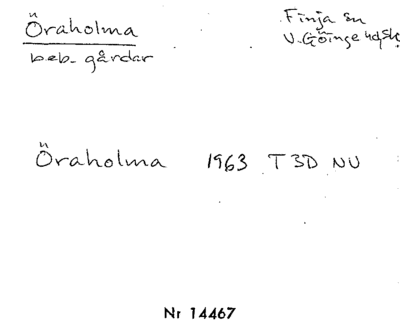 Öraholma
beb. gårdar
Finja sn
V. Göinge hd, Sk.
Öraholma 1963 T 3D NU
Nr 14467